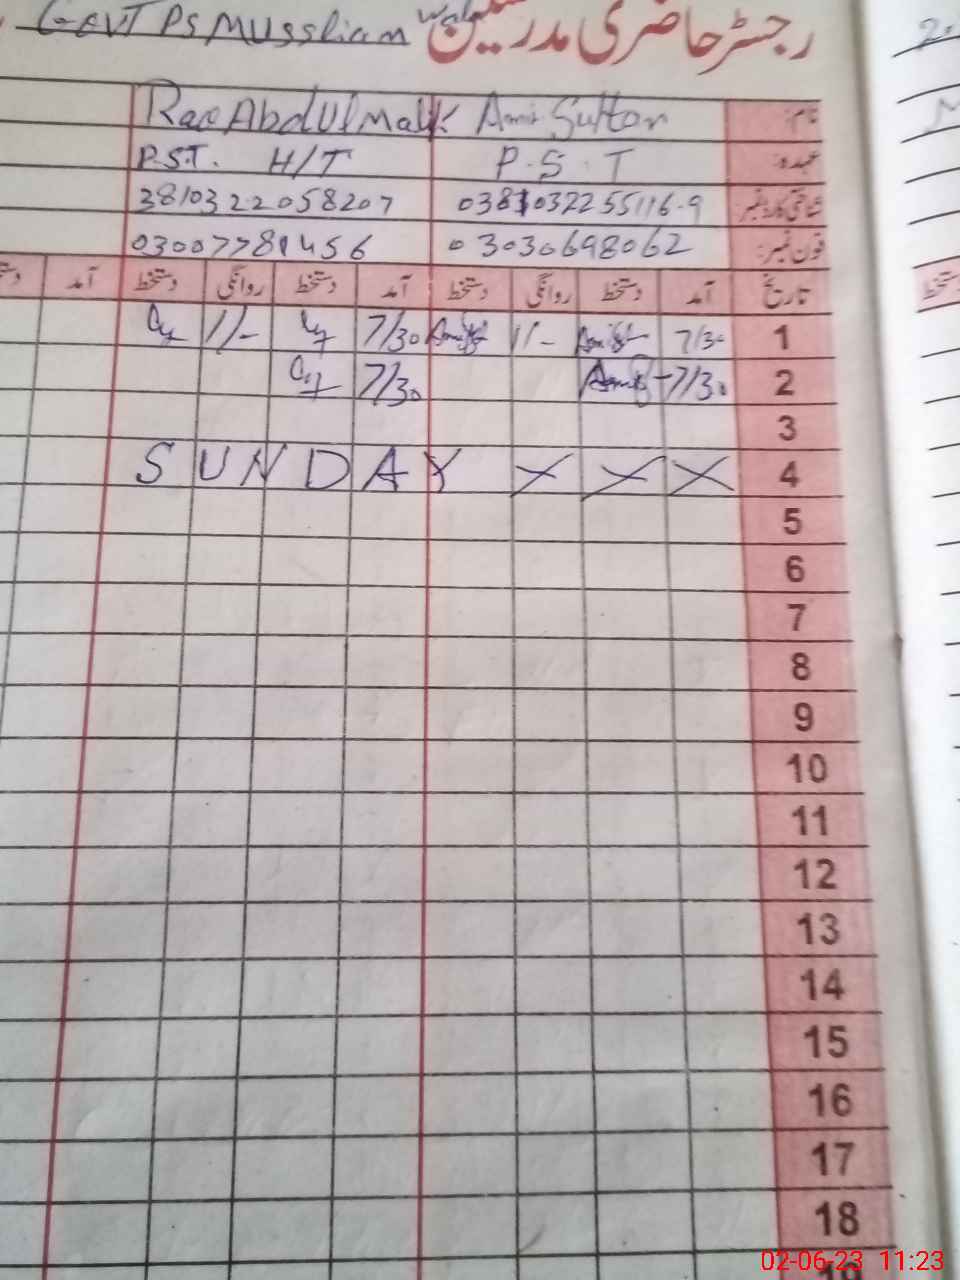 GOVT PS Mussliam Wala رجسٹر حاضری مدرسین
نام: Amir Sultan Rao Abdul Malik
عہدہ: P.S.T P.S.T. H/T
شناختی کارڈ نمبر: 0381032255116-9 3810322058207
فون نمبر: 03030698062 03007781456
تاریخ آمد دستخط روانگی دستخط آمد دستخط روانگی دستخط آمد
1 7/30 1/- 7/30 1/-
2 7/30 7/30
3
4 SUNDAY X X X
5
6
7
8
9
10
11
12
13
14
15
16
17
18
02-06-23 11:23